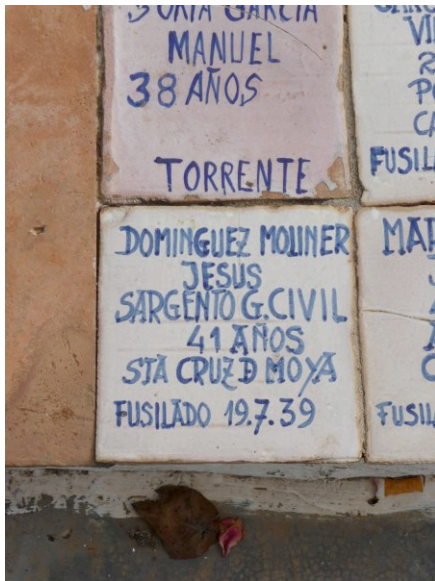 SORIA GARCIA
MANUEL
38 AÑOS
TORRENTE
DOMINGUEZ MOLINER
JESUS
SARGENTO G. CIVIL
41 AÑOS
STA CRUZ D MOYA
FUSILADO 19.7.39